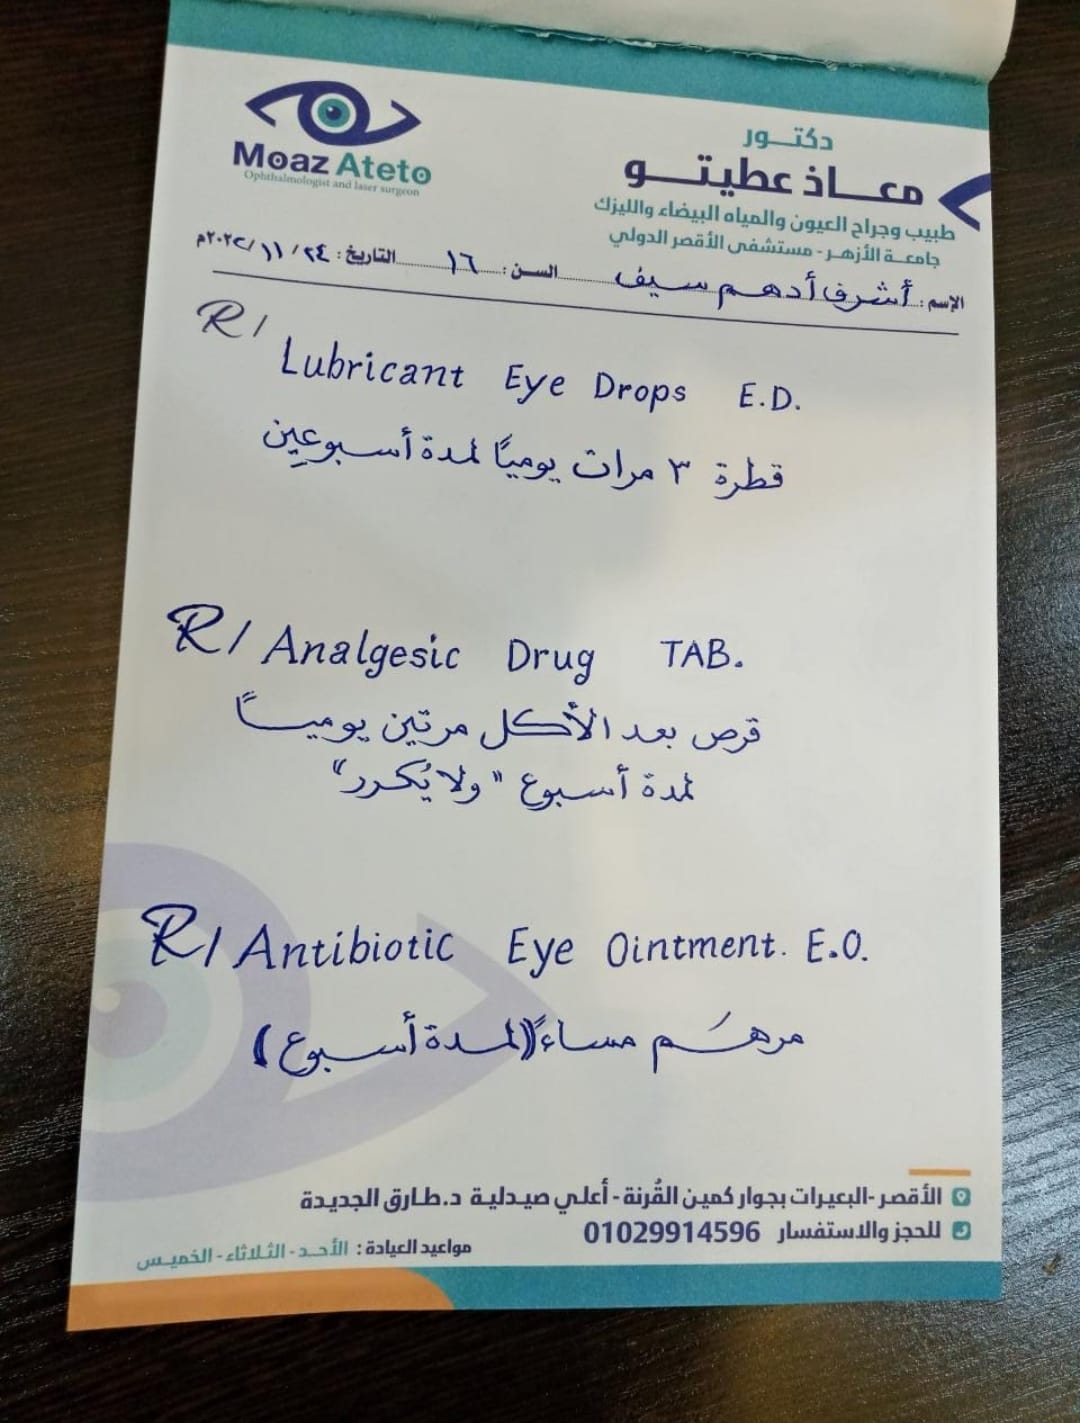 Moaz Ateto
Ophthalmologist and laser surgeon
دكتور
معاذ عطيتو
طبيب وجراح العيون والمياه البيضاء والليزك
جامعة الأزهر - مستشفى الأقصر الدولي
الإسم: أشرف أدهم سيف السن: ١٦ التاريخ: ٢٤ / ١١ / ٢٠٢٢م
R/ Lubricant Eye Drops E.D.
قطرة ٣ مرات يومياً لمدة أسبوعين
R/ Analgesic Drug TAB.
قرص بعد الأكل مرتين يومياً
لمدة أسبوع "ولا يُكرر"
R/ Antibiotic Eye Ointment. E.O.
مرهَم مساءً (لمدة أسبوع)
الأقصر - البعيرات بجوار كمين القُرنة - أعلي صيدلية د.طارق الجديدة
للحجز والاستفسار 01029914596
مواعيد العيادة: الأحد - الثلاثاء - الخميس